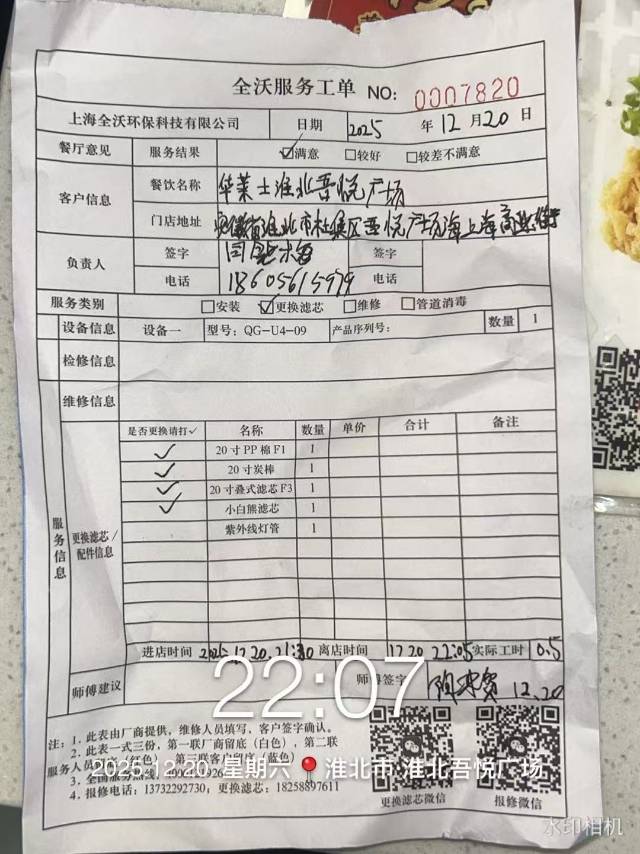 全沃服务工单 NO: 0007820
上海全沃环保科技有限公司 日期 2025 年 12 月 20 日
餐厅意见 服务结果 ☑满意 □较好 □较差不满意
客户信息 餐饮名称 华莱士淮北吾悦广场
门店地址 安徽省淮北市杜集区吾悦广场海上海商业街
负责人 签字 签字
电话 18605615979 电话
服务类别 □安装 ☑更换滤芯 □维修 □管道消毒
设备信息 设备一 型号: QG-U4-09 产品序列号: 数量 1
检修信息
维修信息
服务信息
更换滤芯/配件信息
是否更换请打✓ 名称 数量 单价 合计 备注
✓ 20寸PP棉F1 1
✓ 20寸炭棒 1
✓ 20寸叠式滤芯F3 1
✓ 小白熊滤芯 1
紫外线灯管 1
进店时间 2025.12.20. 离店时间 12.20 22:05 实际工时 0.5
师傅建议 师傅签字 12.20
22:07
注: 1、此表由厂商提供,维修人员填写,客户签字确认。
2、此表一式三份,第一联厂商留底(白色),第二联
服务人员 (红色) 第三联客户留底(蓝色)
3、全国服务热线:
4、报修电话:13732292730;更换滤芯:18258897611
更换滤芯微信 报修微信
2025.12.20 星期六 淮北市·淮北吾悦广场
水印相机